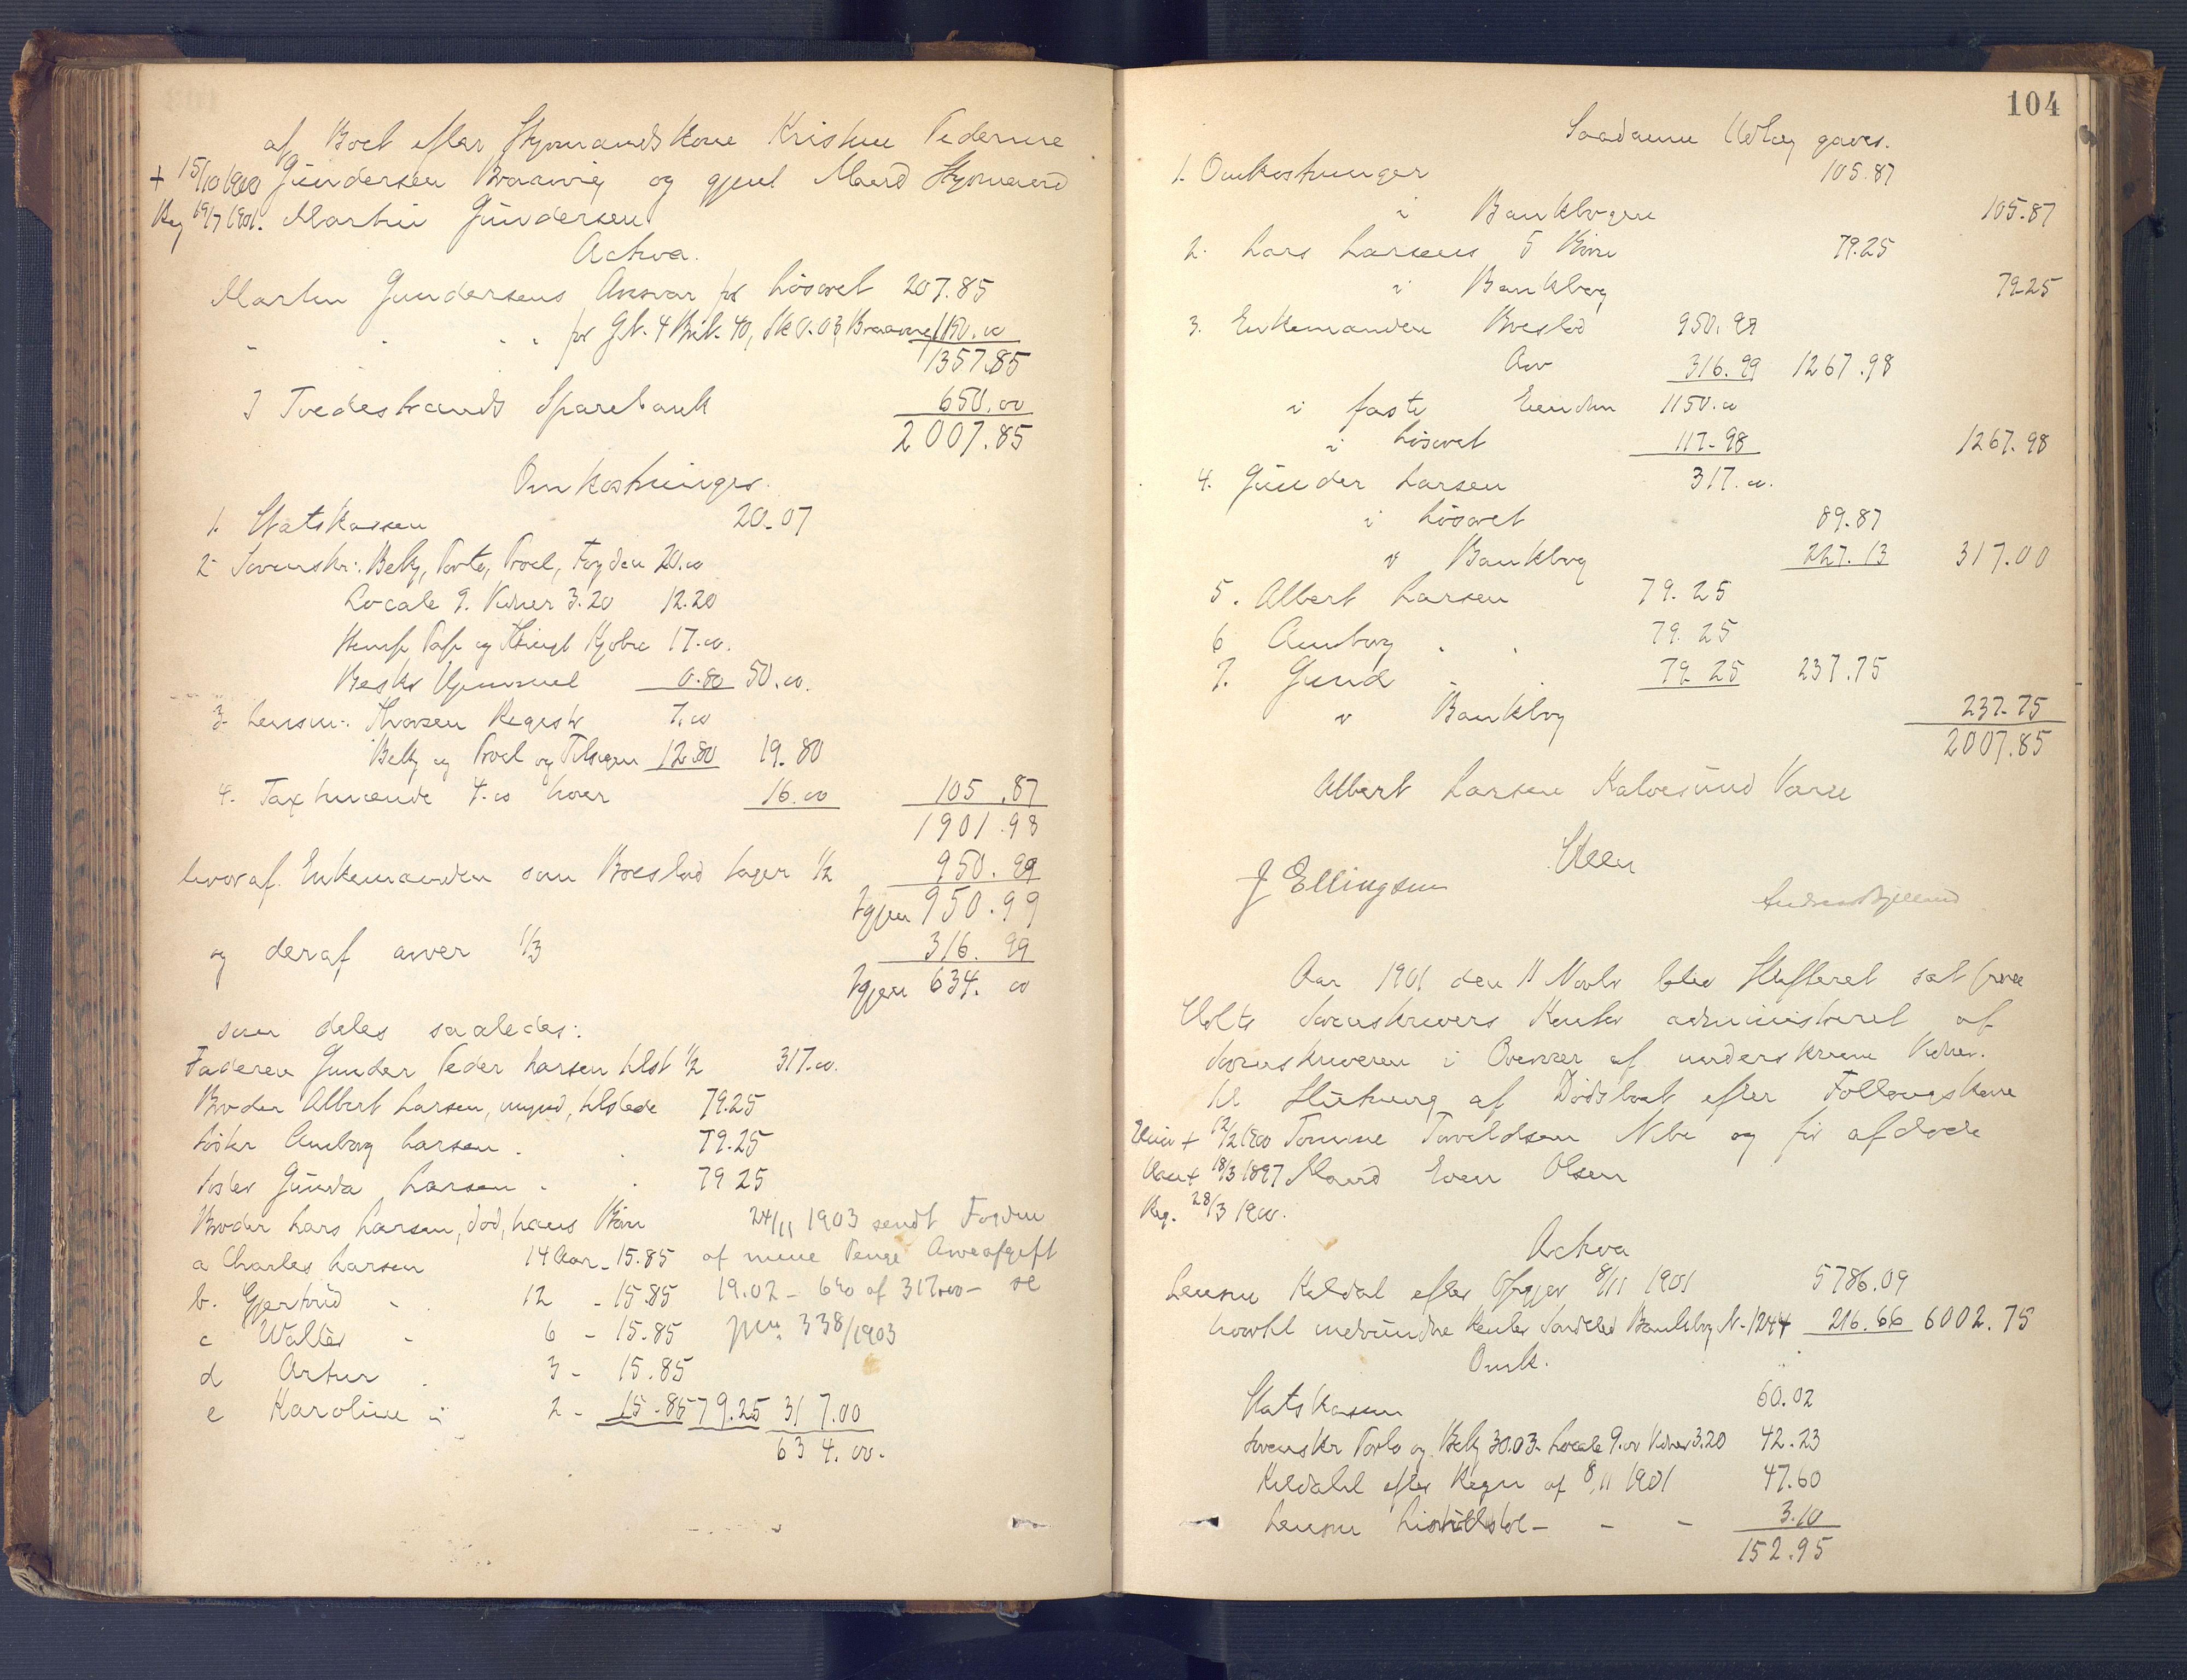 af Boet efter Styrmandskone Kristine Pederine
+ 15/10 1900 Gundersen Braavig og gjenl Mand Styrmand
Reg 19/7 1901. Martin Gundersen
Activa.
Martin Gundersens Ansvar for Løsøret 207.85
" " " " for G.N. 4 Br.N. 40, Sk 0.03 Braavig 1150.00
1357.85
I Tvedestrands Sparebank 650.00
2007.85
Omkostninger.
1. Statskassen 20.07
2. Sorenskr: Bekj, Porto, Procl, Fogden 20.00
Locale 9. Vidner 3.20 12.20
Stemp Pap og Thingl Hjobre 17.00.
Beskr Hjemmel 0.80 50.00.
3. Lensm: Thorsen Registr 7.00
Bekj og Procl og Tilsigen 12.80 19.80
4. Taxtmænde 4.00 hver 16.00 105.87
1901.98
hvoraf Enkemanden som Boeslod tager 1/2 950.99
Igjen 950.99
og deraf arver 1/3 316.99
Igjen 634.00
som deles saaledes:
Faderen Gunder Peder Larsen tilst 1/2 317.00.
Broder Albert Larsen, mynd, tilstede 79.25
Søster Amborg Larsen " " 79.25
Søster Gunda Larsen " " 79 25
Broder Lars Larsen, død, hans Børn 24/11 1903 sendt Fogden
a Charles Larsen 14 Aar - 15.85 af mine Penge Arveafgift
b. Gjertrud " 12 - 15.85 19.02 - 6% af 317.00 - se
c Walter " 6 - 15.85 jnr. 338/1903
d Artur " 3 - 15.85
e Karoline " 2 - 15.85 79.25 317.00
634.00.
104
Saadanne Udlæg gaves.
1. Omkostninger 105.87
i Bankbogen 105.87
2. Lars Larsens 5 Børn 79.25
i Bankbog 79.25
3. Enkemanden Boeslod 950.99
Arv 316.99 1267.98
i faste Eiendom 1150.00
i Løsøret 117.98 1267.98
4. Gunder Larsen 317.00.
i Løsøret 89.87
i Bankbog 227.13 317.00
5. Albert Larsen 79.25
6 Amborg " " 79.25
7. Gund " " 79 25 237.75
i Bankbog 237.75
2007.85
Albert Larsen Kalvesund Varee
Steen
J Ellingsen
Andreas Bjelland
Aar 1901 den 11 Novbr blev Skifteret sat paa
Holts Sorenskrivers Kontor administreret af
Sorenskriveren i Overvær af underskrevne Vidner.
til Slutning af Dødsboet efter Follaugskone
+ 12/2 1900 Tomine Tarveldsen Nibe og før afdøde
+ 18/3 1897 Mand Even Olsen
Reg. 28/3 1900.
Activa
Lensm Kildal efter Opgjør 8/11 1901 5786.09
hvortil indvundne Renter Sandelød Bankbog N. 1244 216.66 6002.75
Omk.
Statskassen 60.02
Sorenskr Porto og Bekj 30.03. Locale 9.00 Vidner 3.20 42.23
Kildahl efter Regn af 8/11 1901 47.60
Lensm - - - 3.10
152.95